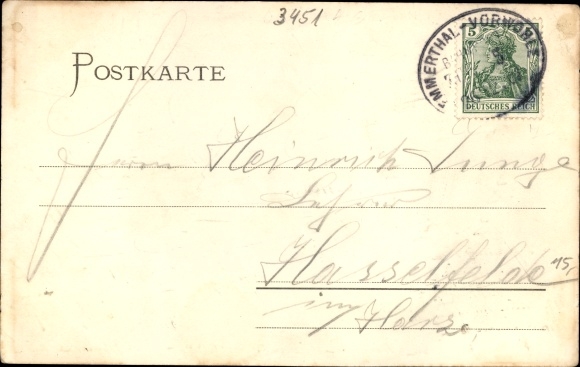 3451
POSTKARTE
EMMERTHAL-VORWOHLE
5
DEUTSCHES REICH
Herrn Heinrich Junge
Hasselfelde
15,
im
Harz.